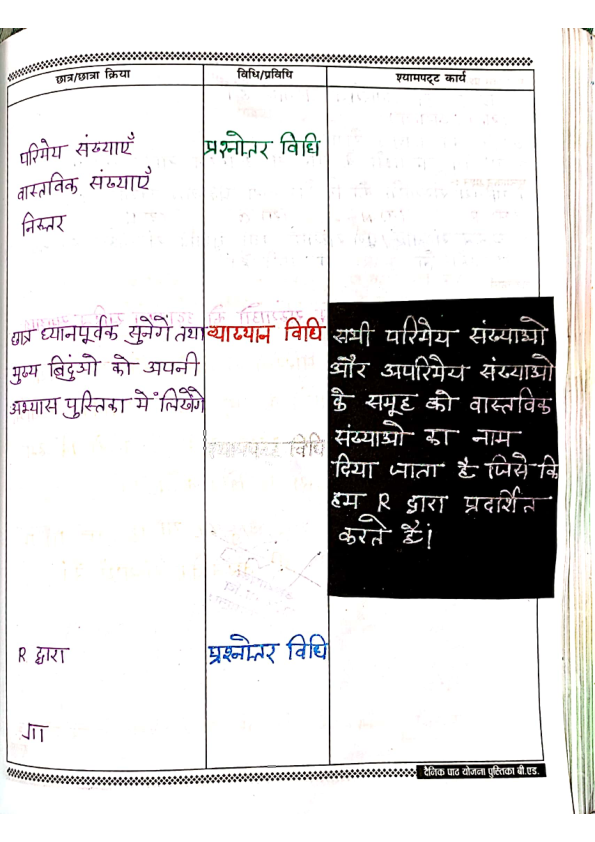 छात्र/छात्रा क्रिया
विधि/प्रविधि
श्यामपट्ट कार्य
परिमेय संख्याएँ
वास्तविक संख्याएँ
निरुत्तर
प्रश्नोतर विधि
छात्र ध्यानपूर्वक सुनेगें तथा
मुख्य बिदुंओ को अपनी
अभ्यास पुस्तिका में लिखेंगे
व्याख्यान विधि
सभी परिमेय संख्याओ
और अपरिमेय संख्याओ
के समूह को वास्तविक
संख्याओ का नाम
दिया जाता है जिसे कि
हम R द्वारा प्रदर्शित
करते है।
R द्वारा
प्रश्नोतर विधि
दैनिक पाठ योजना पुस्तिका बी.एड.